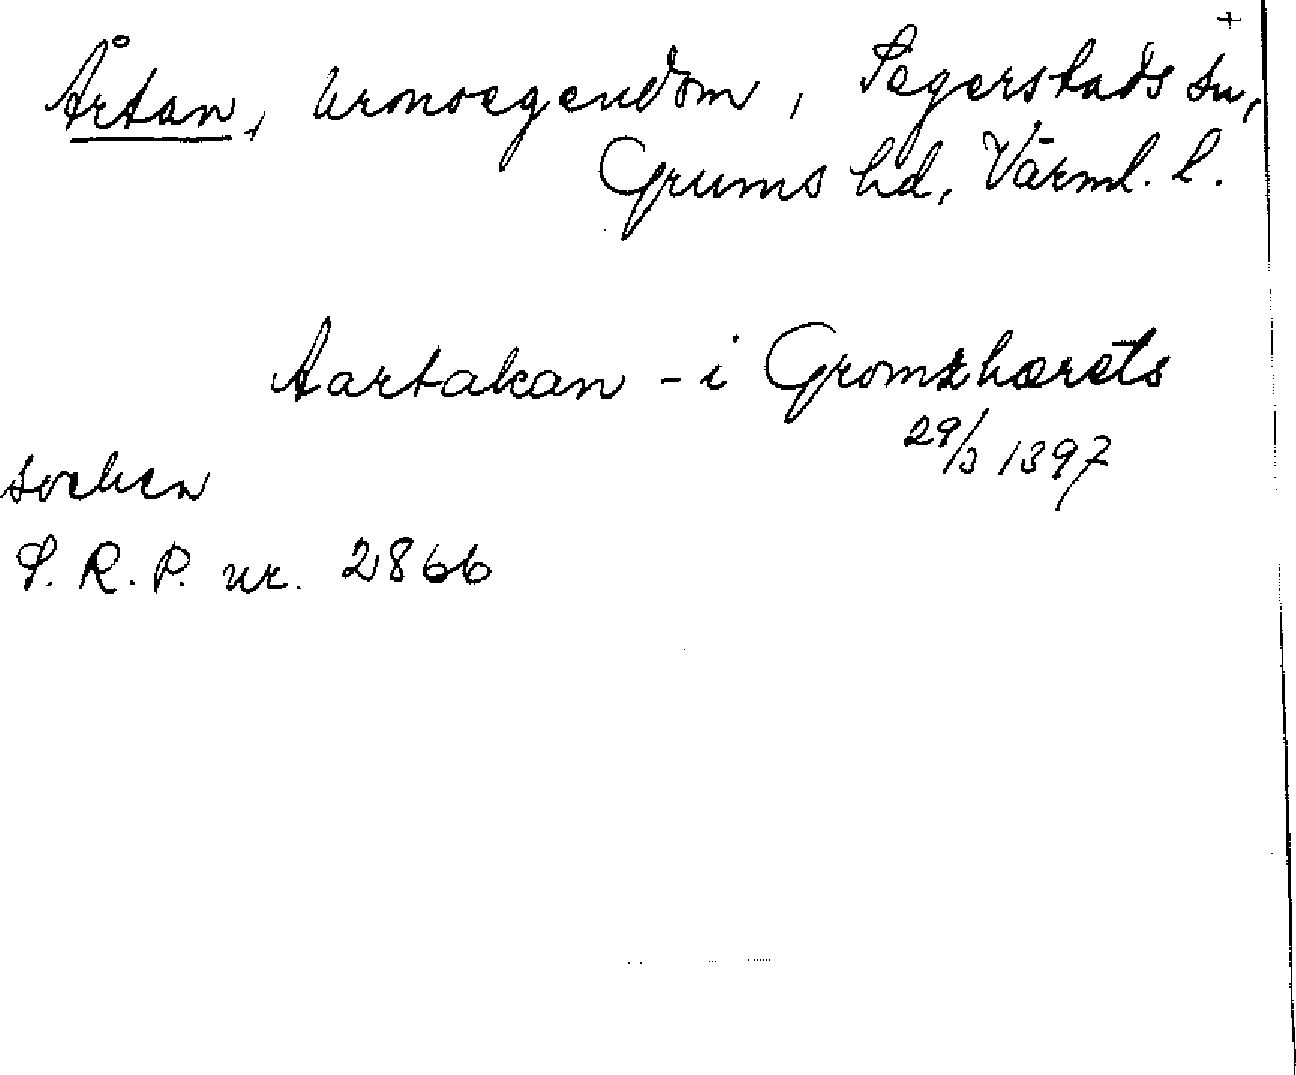 +
Årtan, kronoegendom, Segerstads sn,
Grums hd, Värml. l.
Aartakan - i Gromzhæræts
29/3 1397
socken
S. R. P. nr. 2866